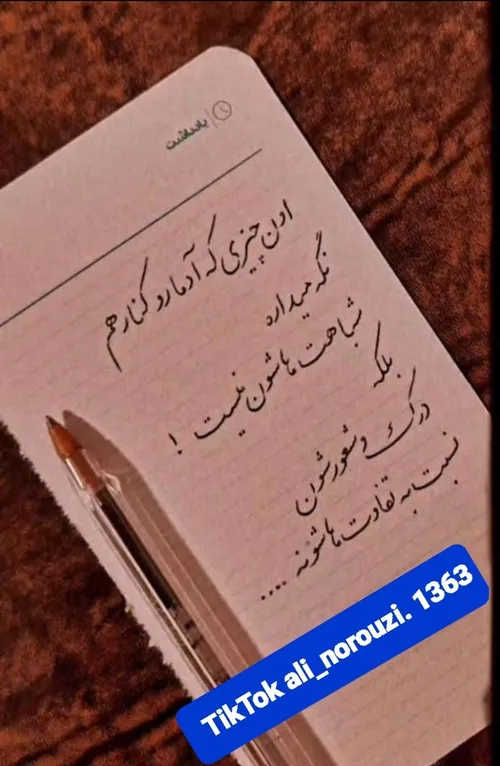 یادداشت
اون چیزی که آدما رو کنار هم
نگه میداره
شباهت هاشون نیست !
بلکه
درک و شعورشون
نسبت به تفاوت هاشونه ....
TikTok ali_norouzi. 1363